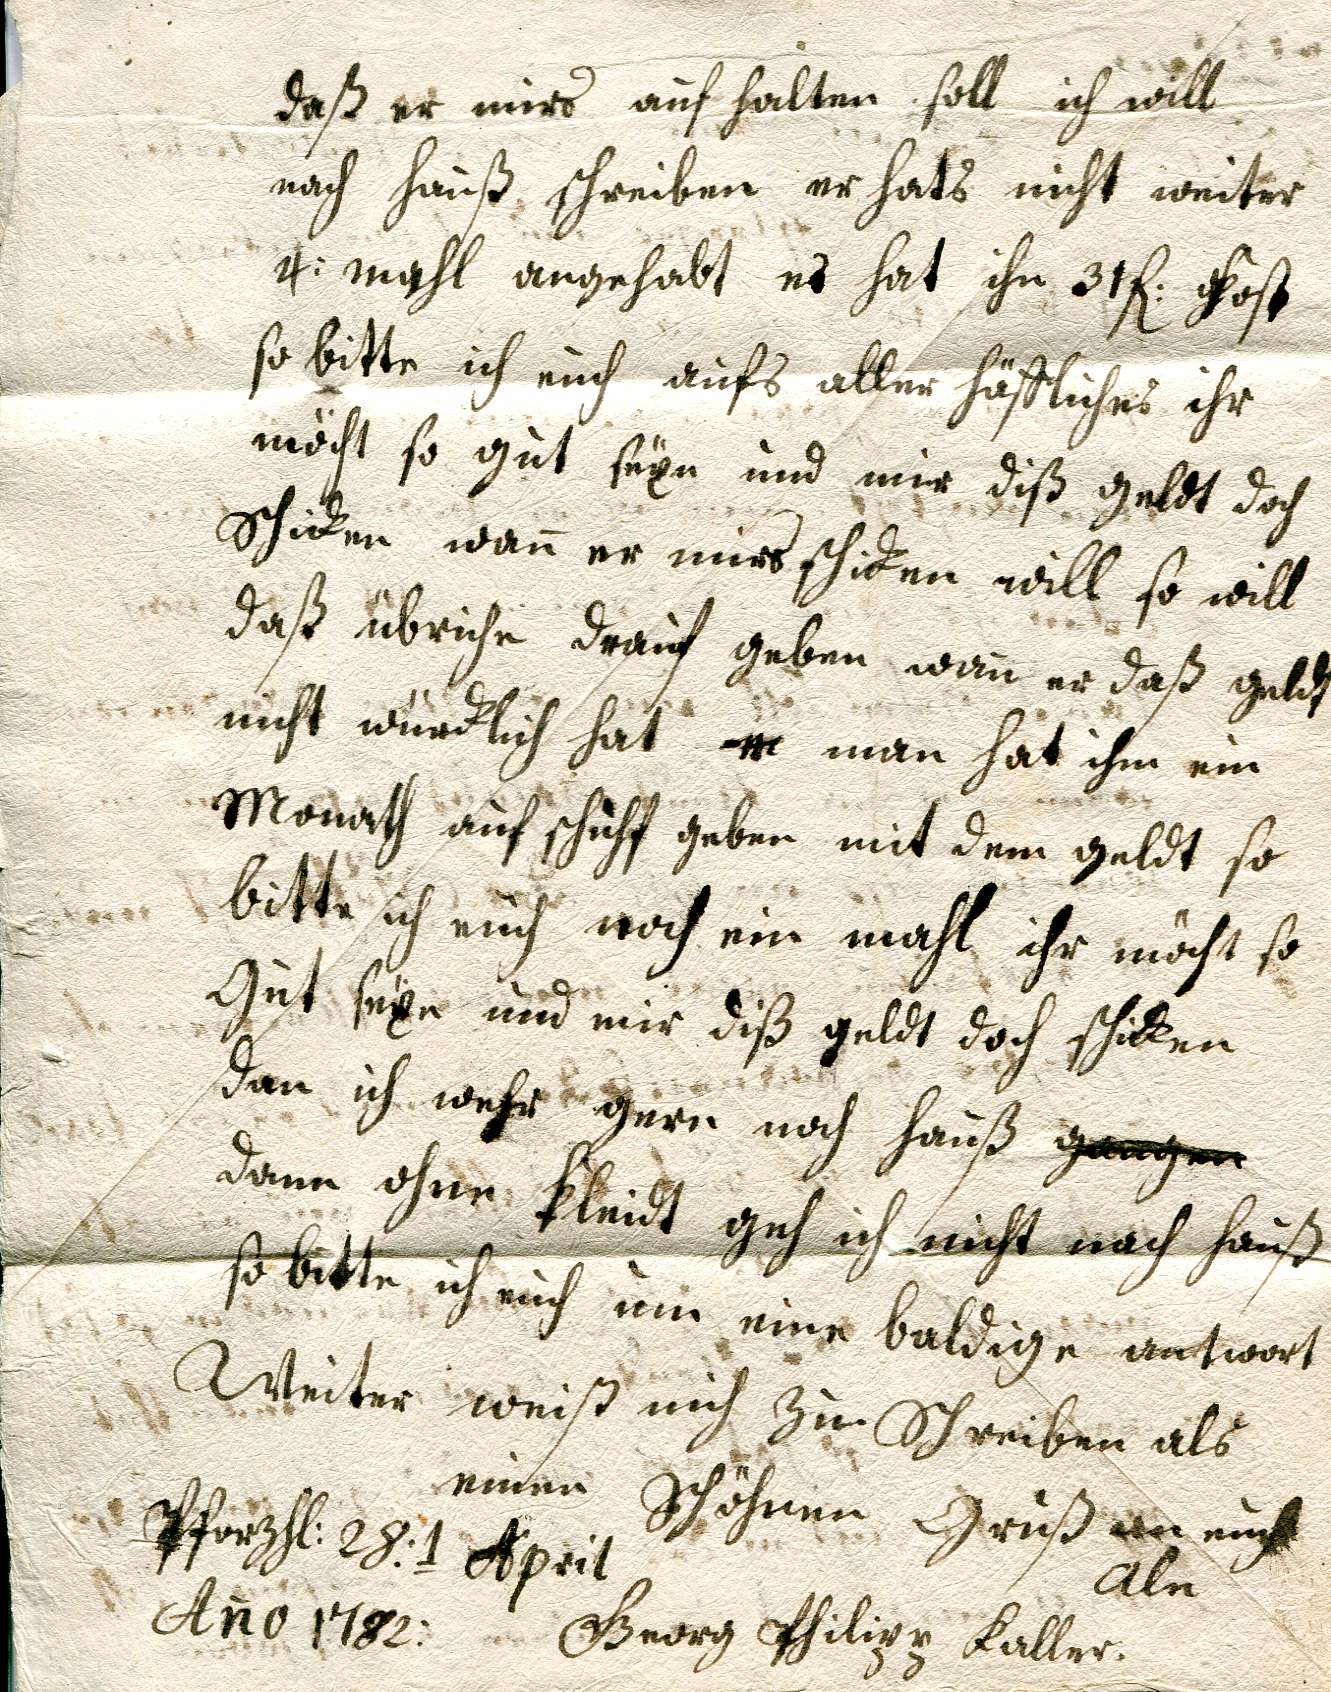 daß er mirs auf halten soll ich will
nach hauß schreiben er hats nicht weiter
4: mahl angehabt es hat ihn 31 f: kost
so bitte ich euch aufs aller höfflichs ihr
möcht so gut seyn und mir diß geldt doch
schicken wañ er mirs schicken will so will
daß übriche drauf geben wañ er daß geldt
nicht würcklich hat man hat ihm ein
Monath auf schuhf geben mit dem geldt so
bitte ich euch noch ein mahl ihr möcht so
Gut seyn und mir diß geldt doch schicken
dan ich wehr gern nach hauß gangen
dann ohne kleidt geh ich nicht nach hauß
so bitte ich euch um eine baldige antwort
Weiter weiß nich zu Schreiben als
einen schöhnen Gruß an euch
Ale
Pforzhl: 28:1 April
Año 1782:
Georg Philipp Kaller.